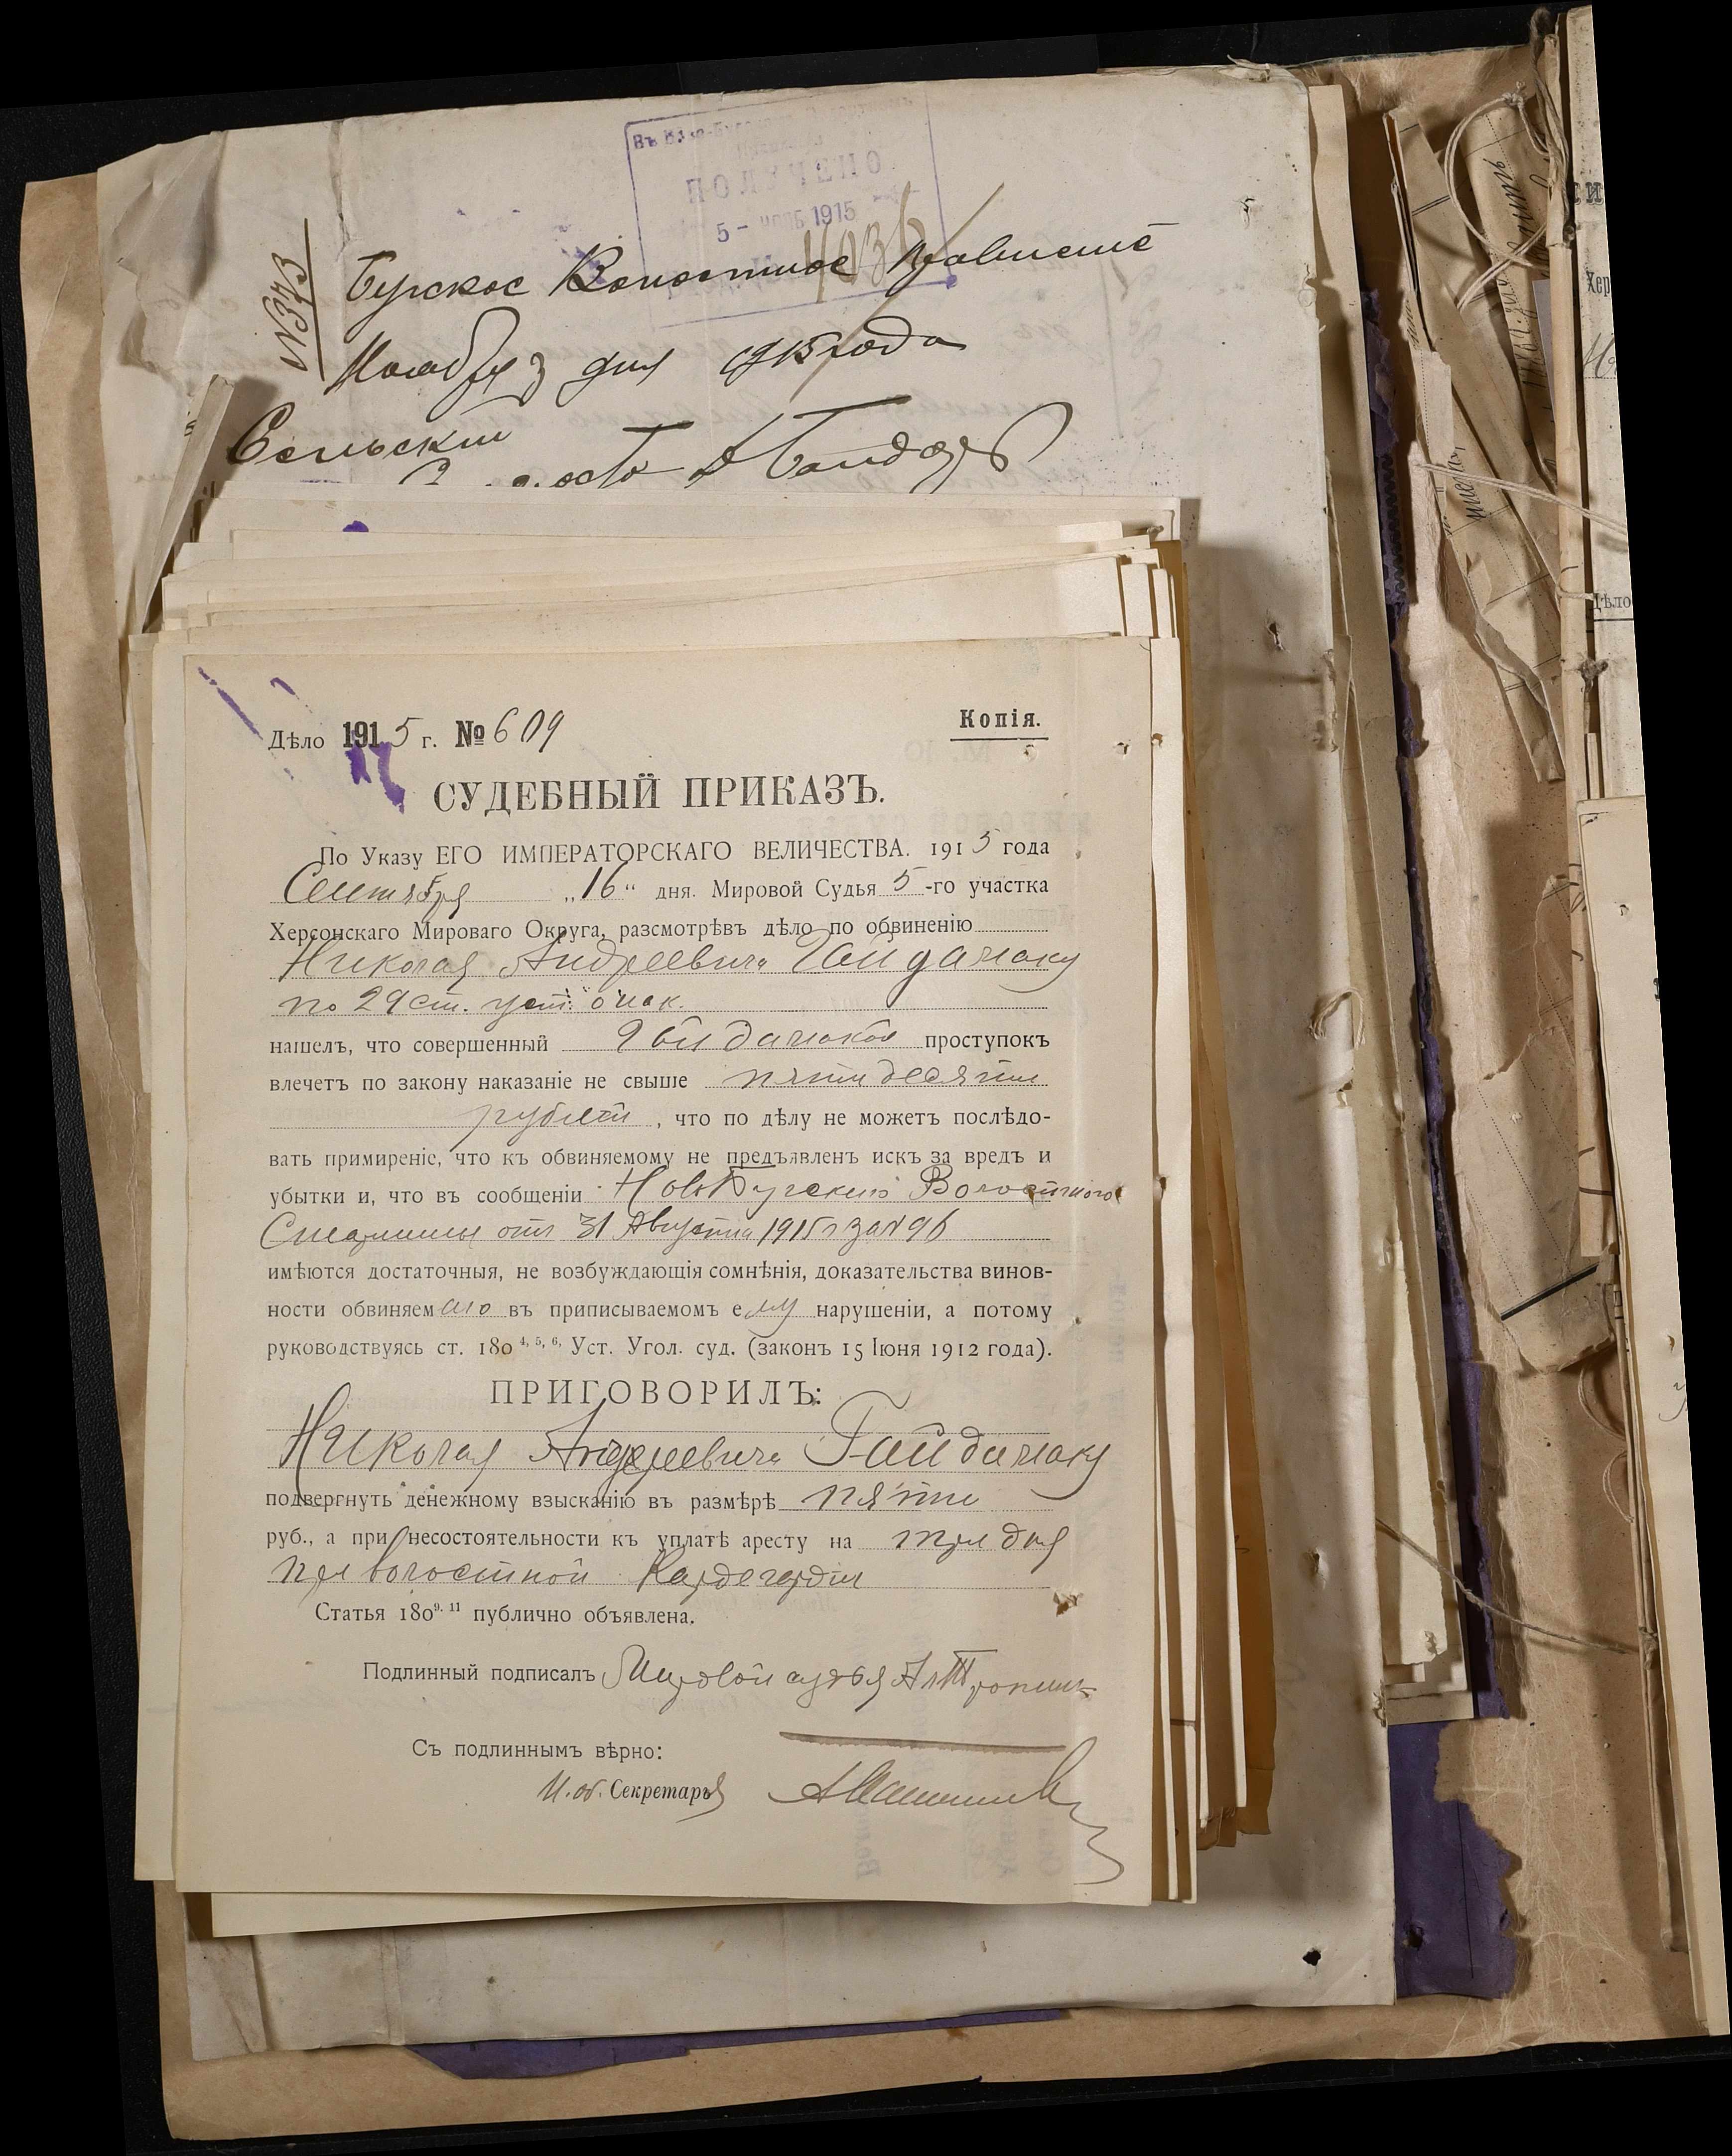 ПОЛУЧЕНО
5 - 1915
№373
Бугское Волостное Правление
Ноября 3 дня 1915 года
Сельский
Дѣло 1915 г. № 609
Копія.
СУДЕБНЫЙ ПРИКАЗЪ.
По Указу ЕГО ИМПЕРАТОРСКАГО ВЕЛИЧЕСТВА. 1915 года
Сентября „16“ дня. Мировой Судья 5-го участка
Херсонскаго Мироваго Округа, разсмотрѣвъ дѣло по обвиненію
Николая Андреевича Гайдамаку
по 29 ст. уст. о нак.
нашелъ, что совершенный Гайдамакой проступокъ
влечетъ по закону наказаніе не свыше пятидесяти
рублей, что по дѣлу не можетъ послѣдо-
вать примиреніе, что къ обвиняемому не предъявленъ искъ за вредъ и
убытки и, что въ сообщеніи НовоБугскаго Волостного
Старшины отъ 31 Августа 1915 г за № 96
имѣются достаточныя, не возбуждающія сомнѣнія, доказательства винов-
ности обвиняемаго въ приписываемомъ ему нарушеніи, а потому
руководствуясь ст. 180 4, 5, 6, Уст. Угол. суд. (законъ 15 Іюня 1912 года).
ПРИГОВОРИЛЪ:
Николая Андреевича Гайдамаку
подвергнуть денежному взысканію въ размѣрѣ пяти
руб., а при несостоятельности къ уплатѣ аресту на три дня
при волостной Кардегардіи
Статья 180 9. 11 публично объявлена.
Подлинный подписалъ Мировой судья
Съ подлиннымъ вѣрно:
И. об. Секретаря